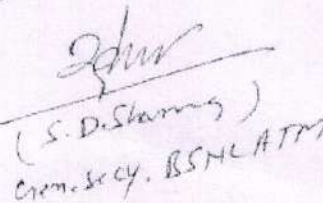 (S.D.Sharma)
Gen. Secy. BSNL ATM